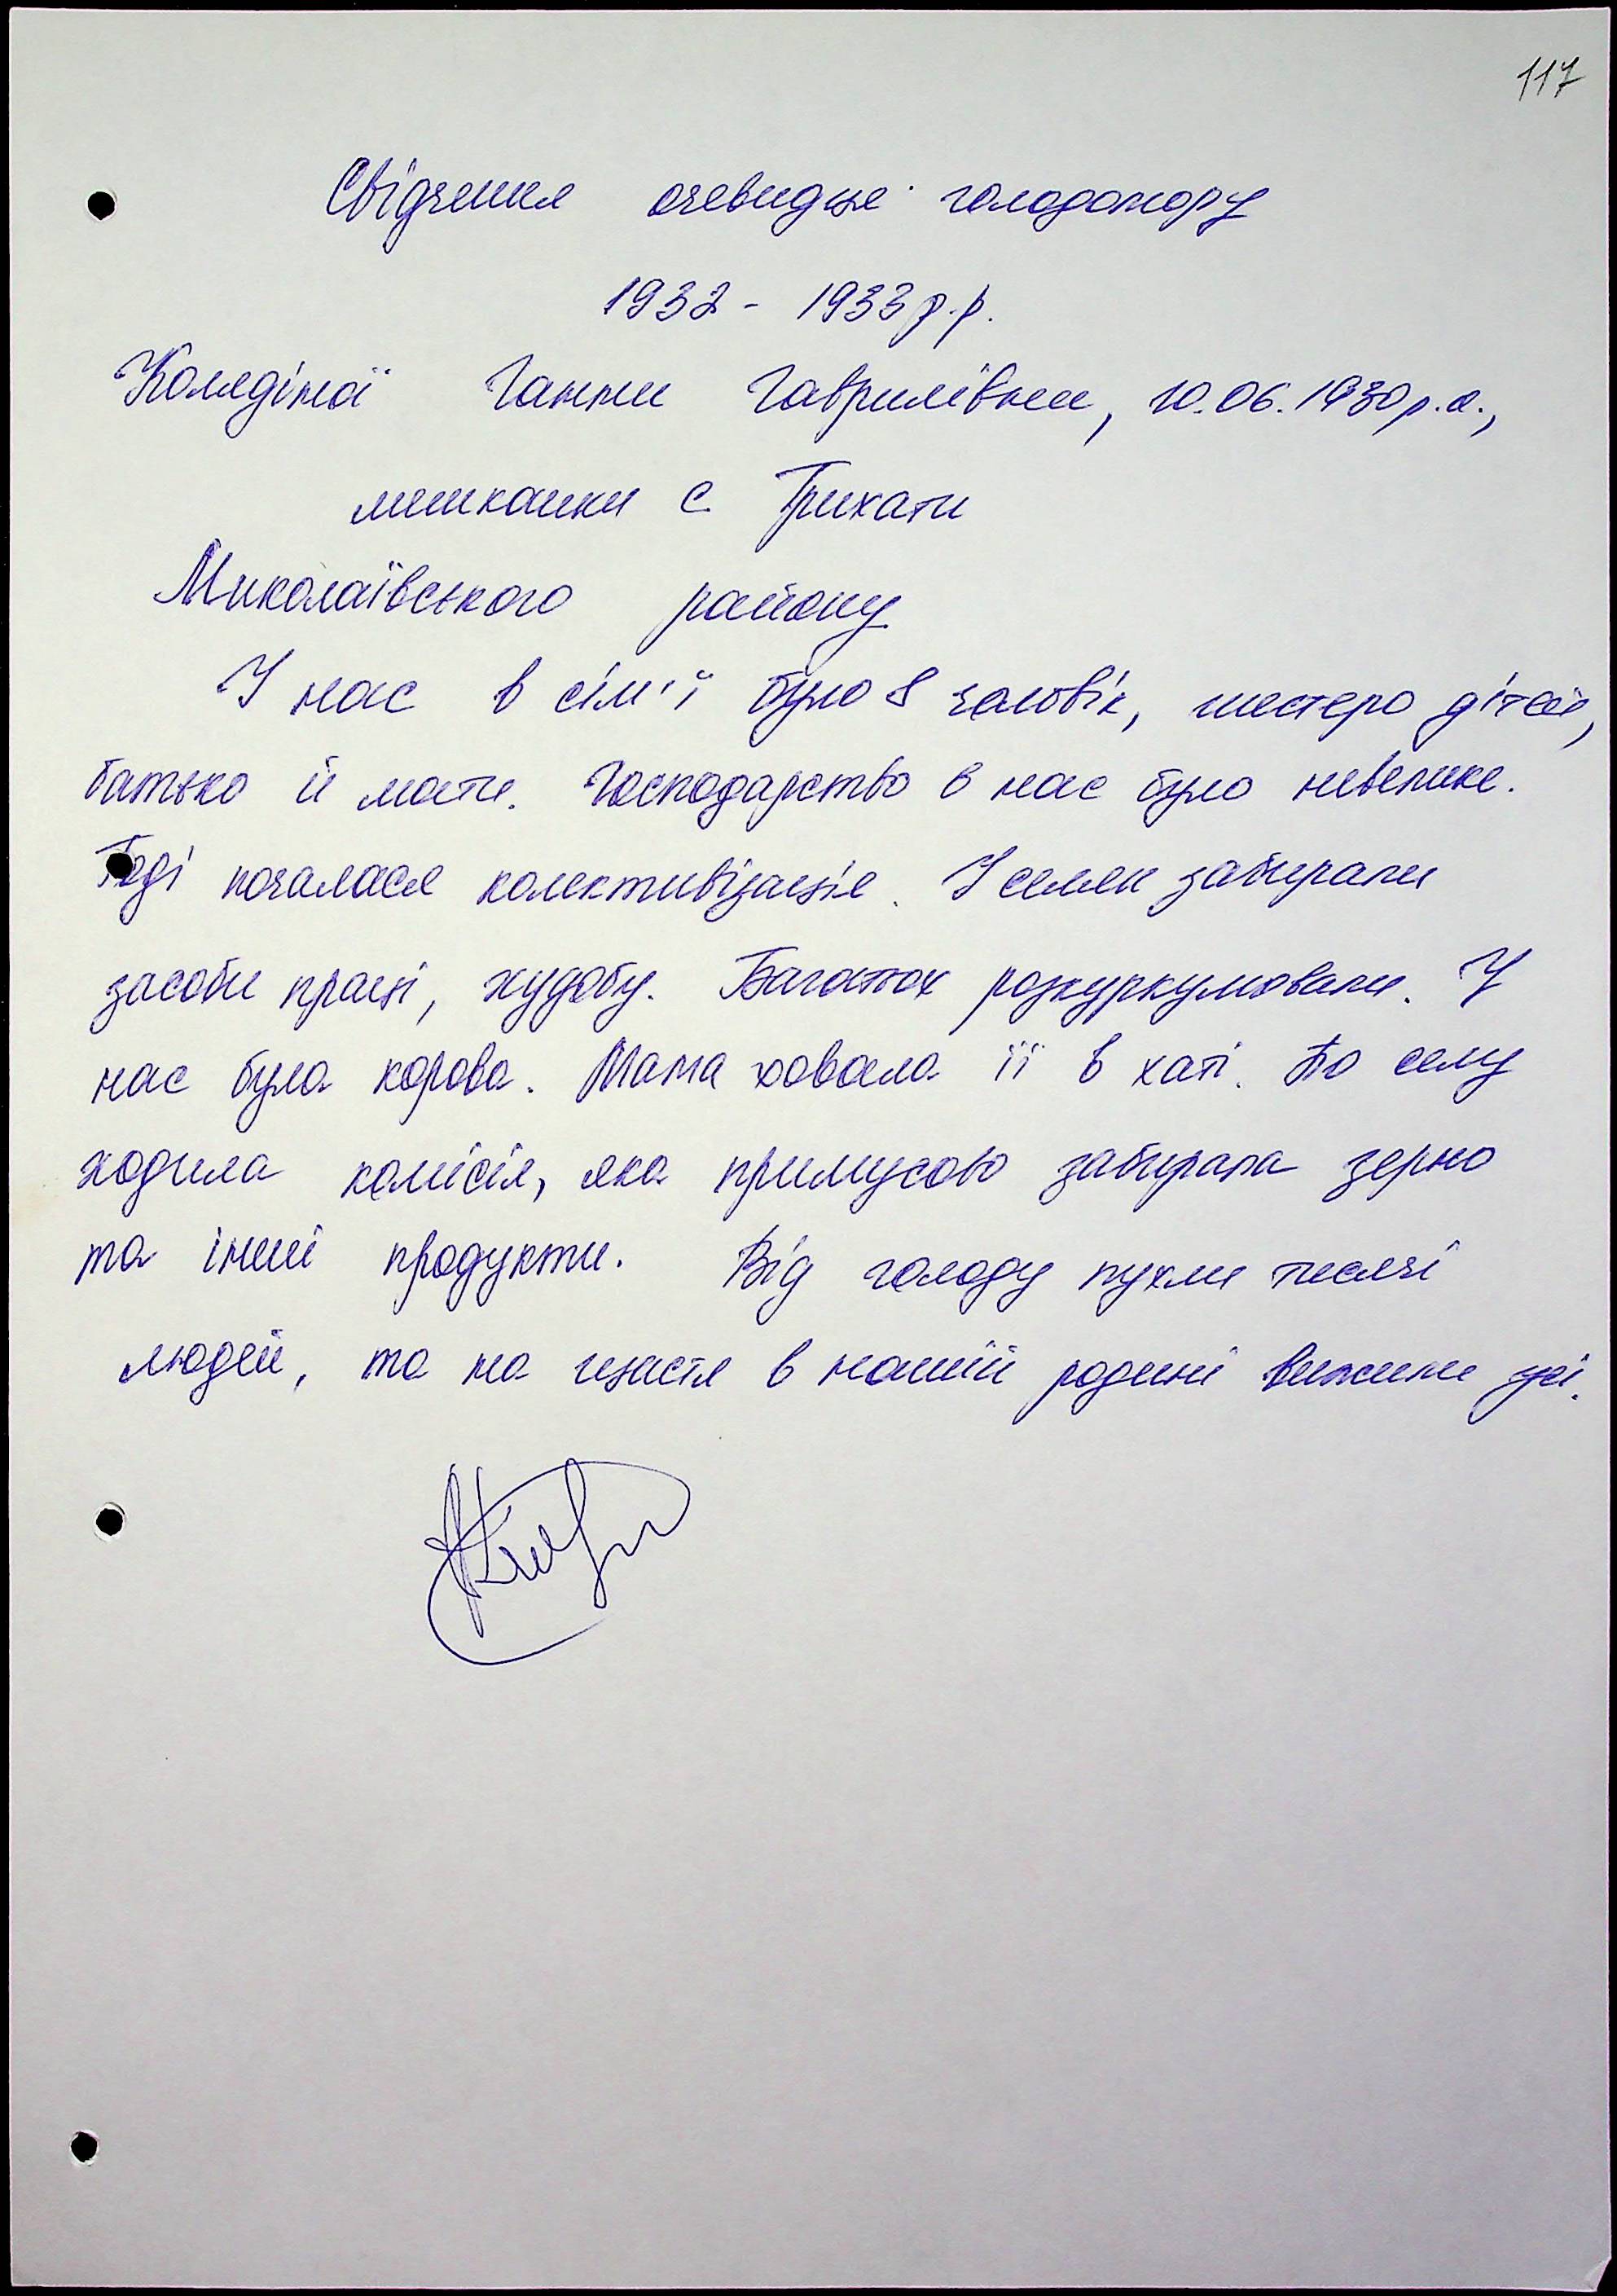 117
Свідчення очевидця голодомору
1932 - 1933 р.р.
Колядіної Ганни Гаврилівни, 10.06.1930 р.н.,
мешканки с Трихати
Миколаївського району
У нас в сім'ї було 8 чоловік, шестеро дітей,
батько й мати. Господарство в нас було невелике.
Тоді почалася колективізація. У селян забирали
засоби праці, худобу. Багатьох розкуркулювали. У
нас була корова. Мама ховала її в хаті. По селу
ходила комісія, яка примусово забирала зерно
та інші продукти. Від голоду пухли тисячі
людей, та на щастя в нашій родині вижили усі.